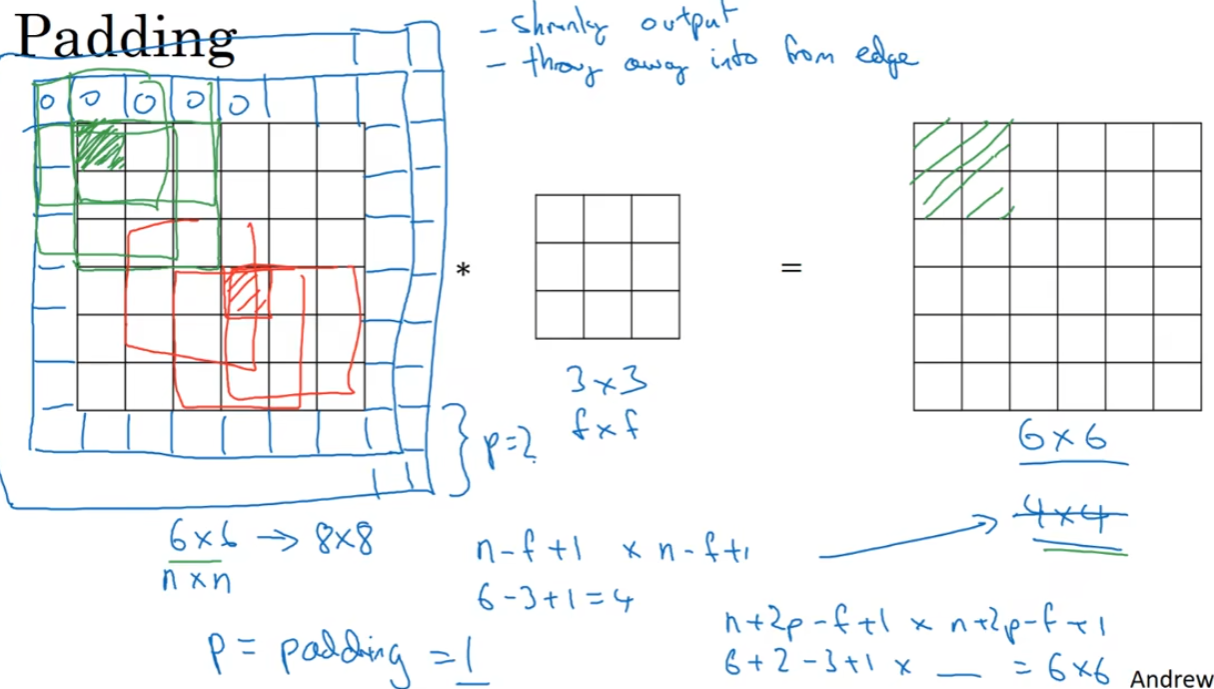 Padding
- shrinky output
- throw away info from edge
0 0 0 0 0
*
=
3 × 3
f × f
p=2
6 × 6
4 × 4
6 × 6 → 8 × 8
n × n
n-f+1 × n-f+1
6-3+1=4
p = padding = 1
n+2p-f+1 × n+2p-f+1
6+2-3+1 × __ = 6×6
Andrew